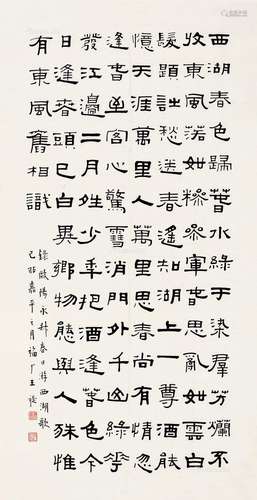 西湖春色歸春水綠于染羣芳爛不
收東風落如糝參軍春思亂如雲白
髮題詩愁送春遙知湖上一尊酒能
憶天涯萬里人萬里思春尚有情忽
逢春至客心驚雪消門外千山綠花
發江邊二月晴少年把酒逢春色今
日逢春頭已白異鄉物態與人殊惟
有東風舊相識
錄歐陽永叔春日游西湖歌
己卯嘉平之月福厂王禔